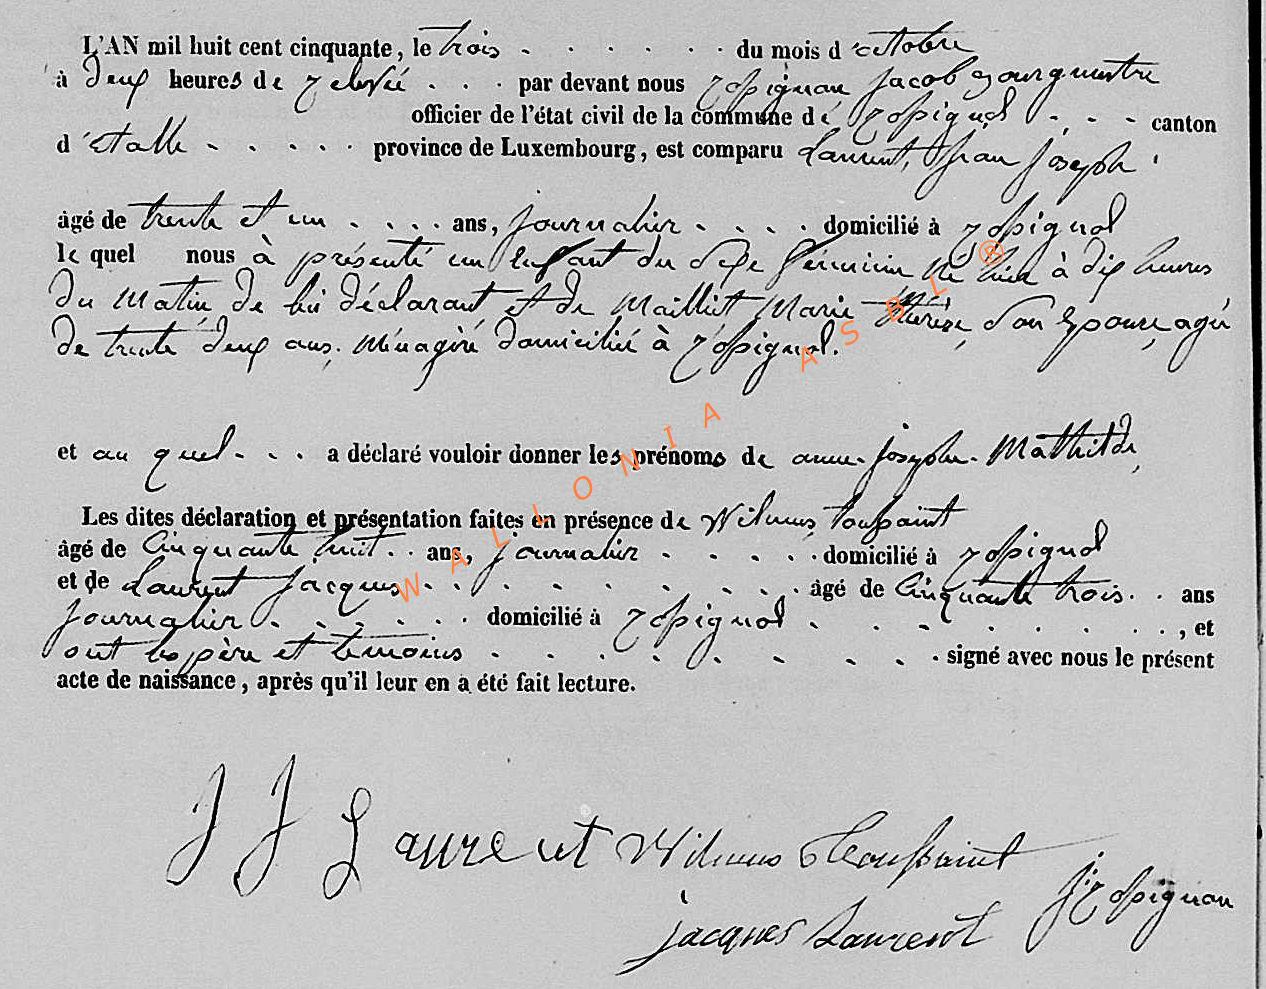 L'AN mil huit cent cinquante, le trois . . . . . . . du mois d'octobre
à deux heures de relevée . . . par devant nous Rossignon jacob Bourguemestre
officier de l'état civil de la commune de Rossignol . . . . canton
d'étalle . . . . . province de Luxembourg, est comparu Laurent, jean joseph
âgé de trente et un . . . . ans, journalier . . . . domicilié à Rossignol
le quel nous à présenté un Enfant du sexe féminin né hier à dix heures
du matin de lui déclarant et de Mailliet Marie Thérèse, son Epouse, agée
de trente deux ans, Ménagère domiciliée à Rossignol.
et au quel . . . a déclaré vouloir donner les prénoms de anne-josephe-Mathilde,
Les dites déclaration et présentation faites en présence de Wilmus, toussaint
âgé de Cinquante huit . . ans, journalier . . . . . domicilié à Rossignol
et de Laurent jacques . . . . . . . . . . âgé de Cinquante trois . . ans
journalier . . . . . . domicilié à Rossignol . . . . . . . . , et
ont les père et temoins . . . . . . . . . signé avec nous le présent
acte de naissance, après qu'il leur en a été fait lecture.
J J Laurent Wilmus Toussaint
jacques Laurent J. Rossignon
WALLONIA ASBL ®